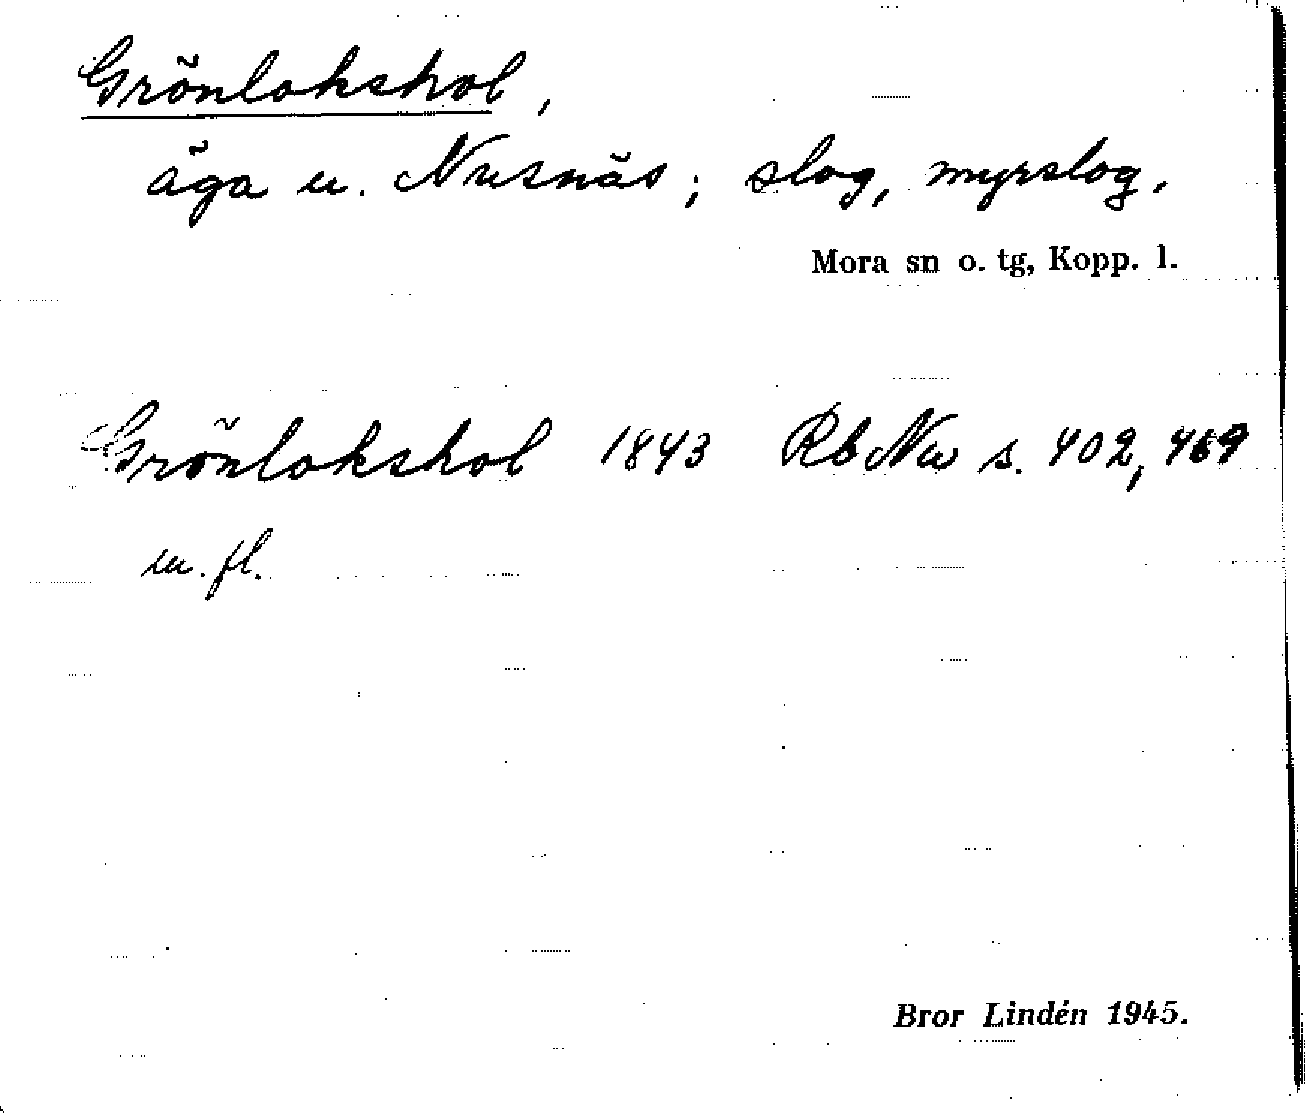 Grönlokshol,
äga u. Nusnäs; slog, myrslog.
Mora sn o. tg, Kopp. l.
Grönlokshol 1843 Rb Nu s. 402, 469
m. fl.
Bror Lindén 1945.